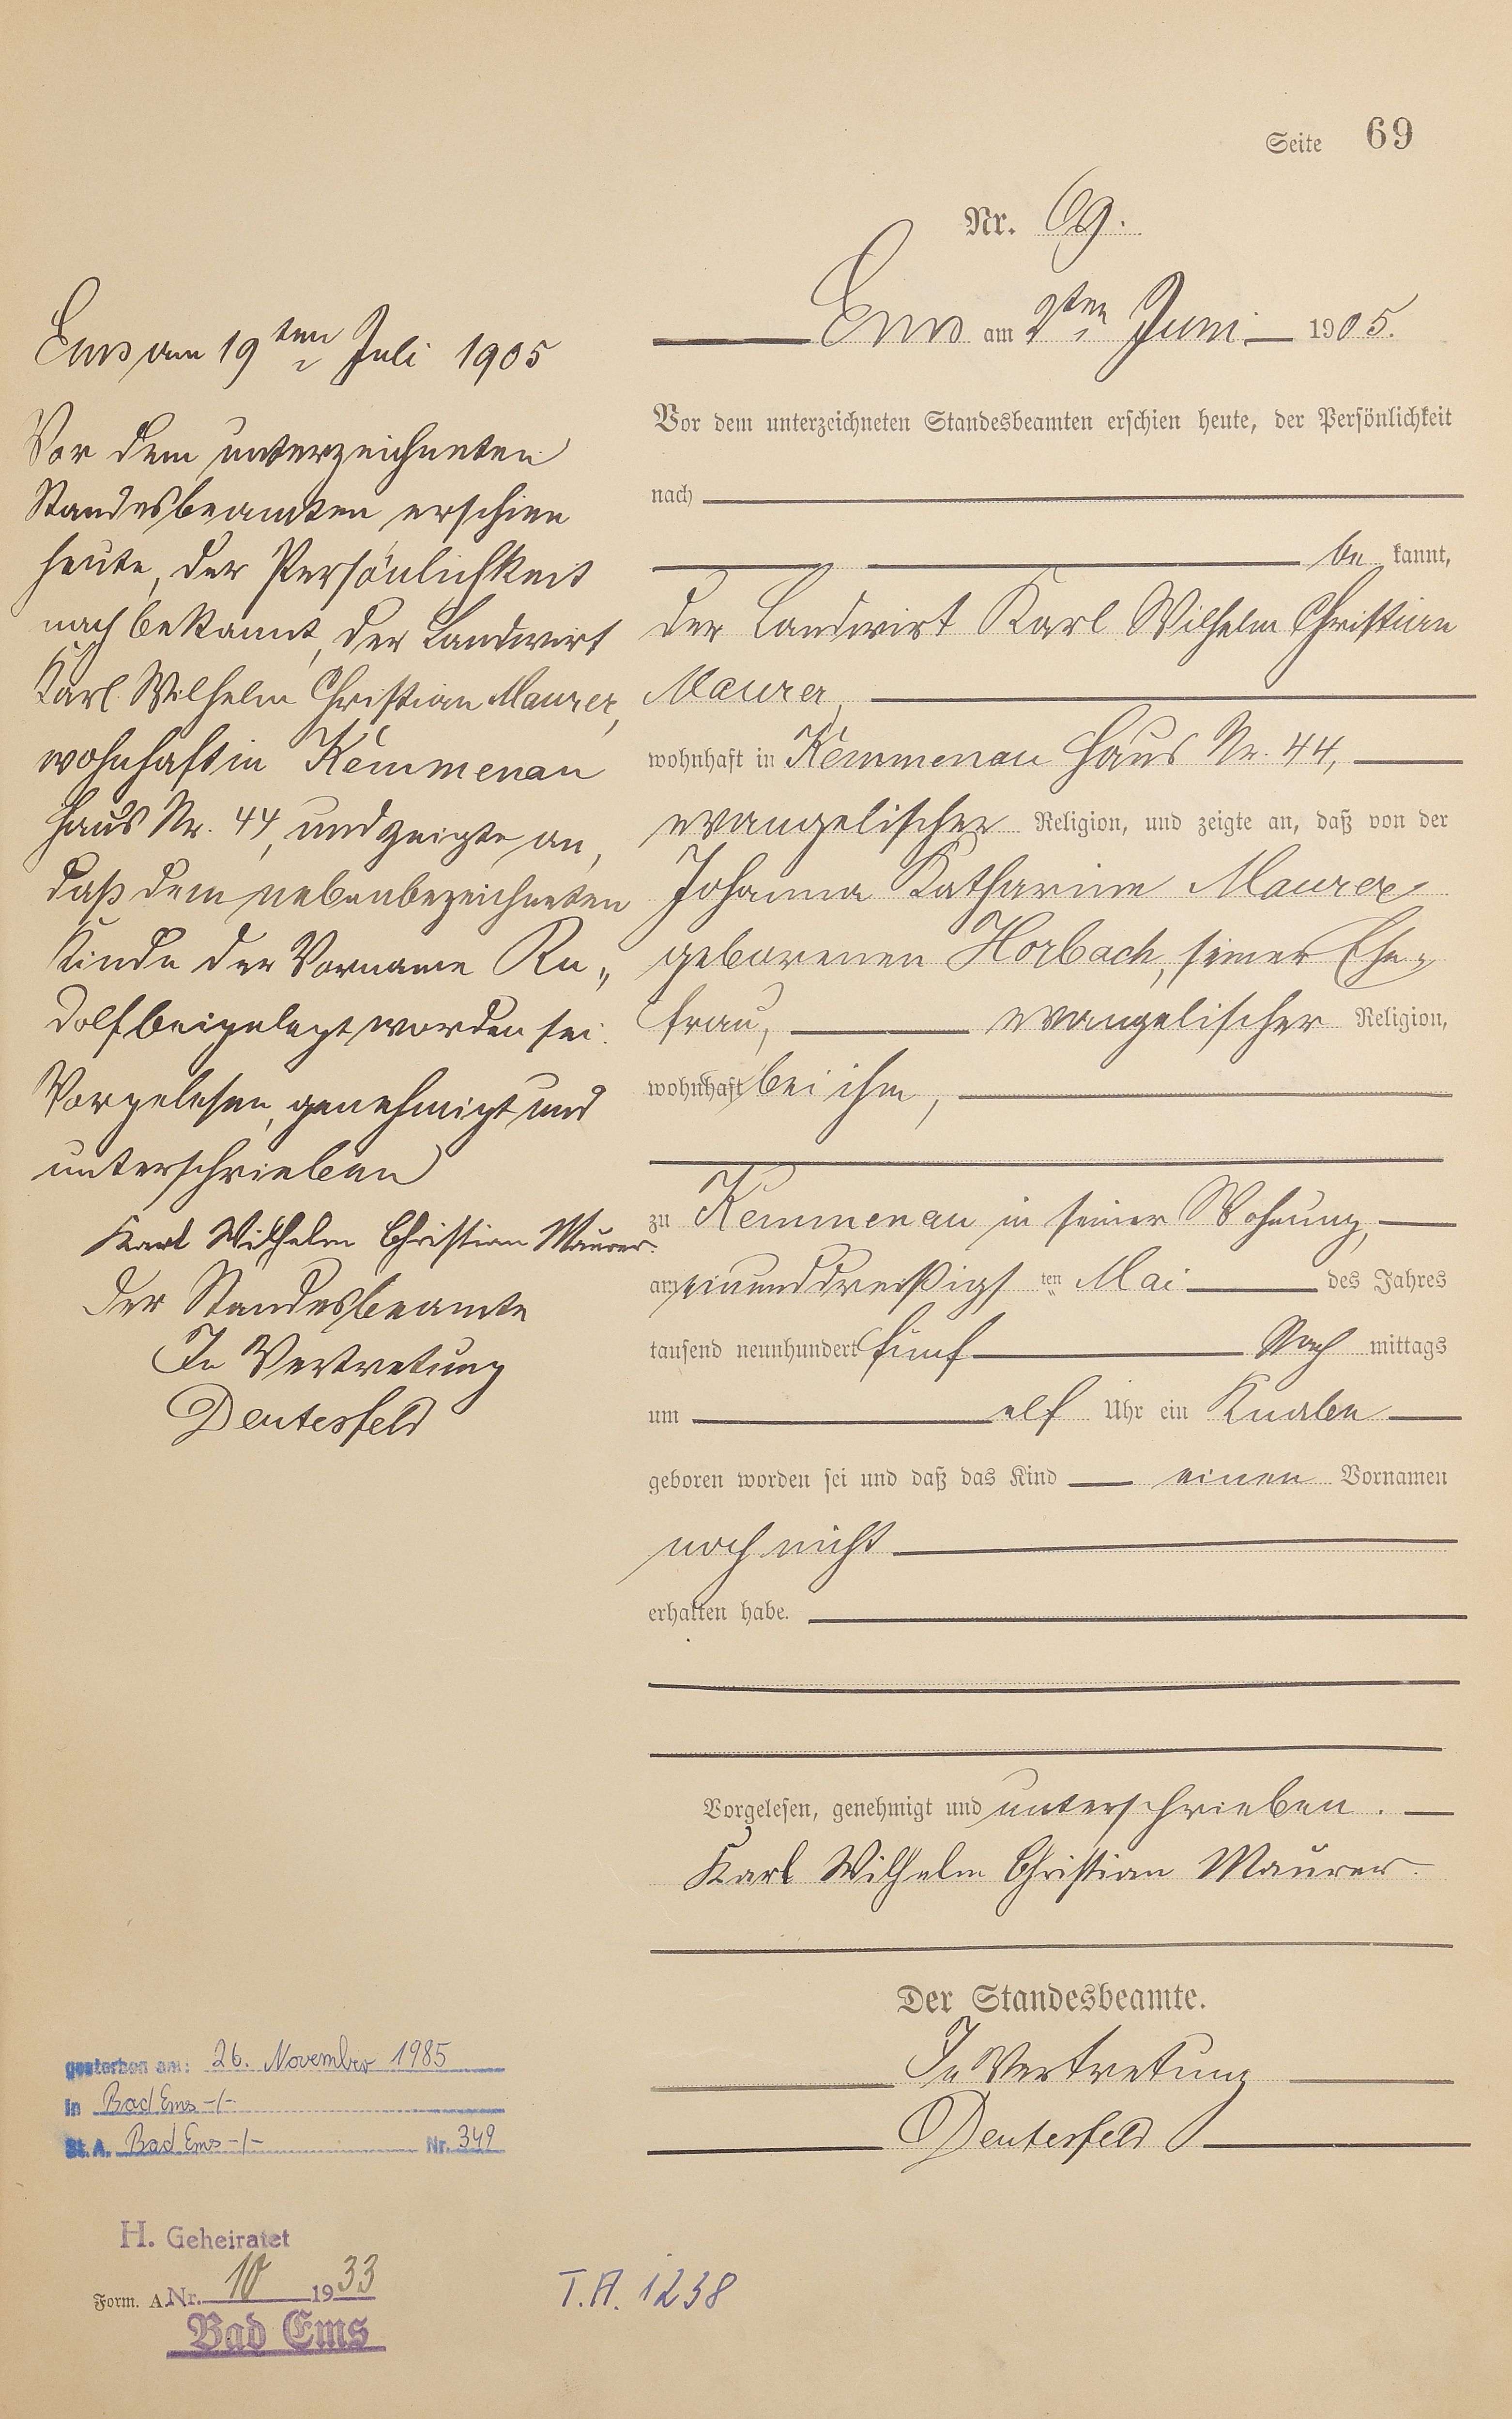 Seite 69
Nr. 69.
Ems am 2ten Juni 1905.
Vor dem unterzeichneten Standesbeamten erschien heute, der Persönlichkeit
nach
be kannt,
der Landwirt Karl Wilhelm Christian
Maurer,
wohnhaft in Kemmenau Haus Nr. 44,
evangelischer Religion, und zeigte an, daß von der
Johanna Katharine Maurer
geborenen Horbach, seiner Ehe„
frau, evangelischer Religion,
wohnhaft bei ihm,
zu Kemmenau in seiner Wohnung,
am einunddreißigsten Mai des Jahres
tausend neunhundert fünf Nach mittags
um elf Uhr ein Knabe
geboren worden sei und daß das Kind einen Vornamen
noch nicht
erhalten habe.
Vorgelesen, genehmigt und unterschrieben.
Karl Wilhelm Christian Maurer.
Der Standesbeamte.
In Vertretung
Deutesfeld
Ems am 19ten Juli 1905
Vor dem unterzeichneten
Standesbeamten erschien
heute, der Persönlichkeit
nach bekannt, der Landwirt
Karl Wilhelm Christian Maurer,
wohnhaft in Kemmenau
Haus Nr. 44, und zeigte an,
daß dem nebenbezeichneten
Kinde der Vorname Ru„
dolf beigelegt worden sei.
Vorgelesen, genehmigt und
unterschrieben
Karl Wilhelm Christian Maurer.
Der Standesbeamte
In Vertretung
Deutesfeld
gestorben am: 26. November 1985
in Bad Ems -/-
St. A. Bad Ems -/- Nr. 349
H. Geheiratet
Form. A. Nr. 10 1933
Bad Ems
T.A. 1238